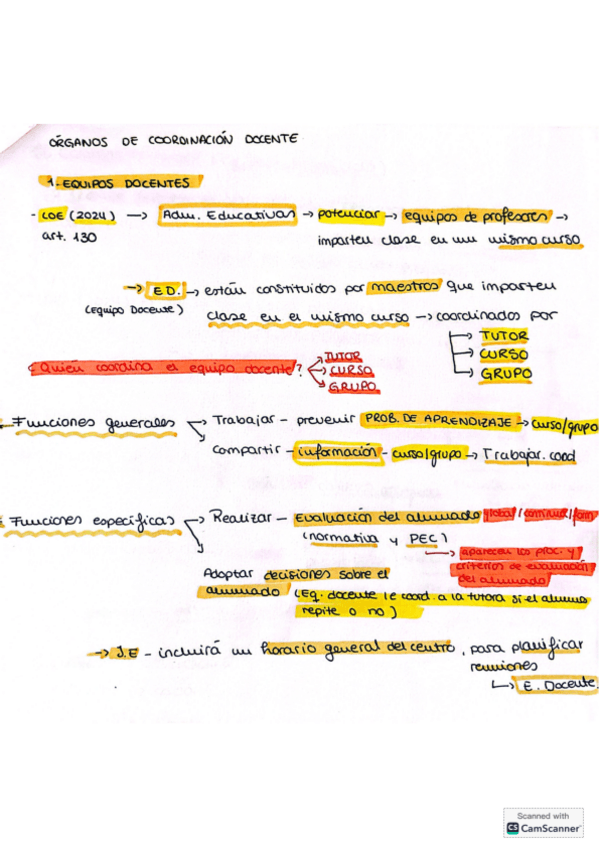 ÓRGANOS DE COORDINACIÓN DOCENTE
1. EQUIPOS DOCENTES
- LOE (2024) → Adm. Educativas → potenciar → equipos de profesores →
art. 130 imparten clase en un mismo curso
→ E.D. → están constituidos por maestros que imparten
(Equipo Docente) clase en el mismo curso → coordinados por
→ TUTOR
→ CURSO
→ GRUPO
¿Quién coordina el equipo docente? TUTOR
CURSO
GRUPO
Funciones generales → Trabajar - prevenir PROB. DE APRENDIZAJE → curso/grupo
Compartir - información - curso/grupo → Trabajar. cood
Funciones específicas → Realizar - Evaluación del alumnado global / continua / form
(normativa y PEC)
→ aparecen los proc. y
criterios de evaluación
del alumnado
Adoptar decisiones sobre el
alumnado (Eq. docente le coord a la tutora si el alumno
repite o no)
→ J.E - incluirá un horario general del centro, para planificar
reuniones
→ E. Docente
Scanned with
CS CamScanner